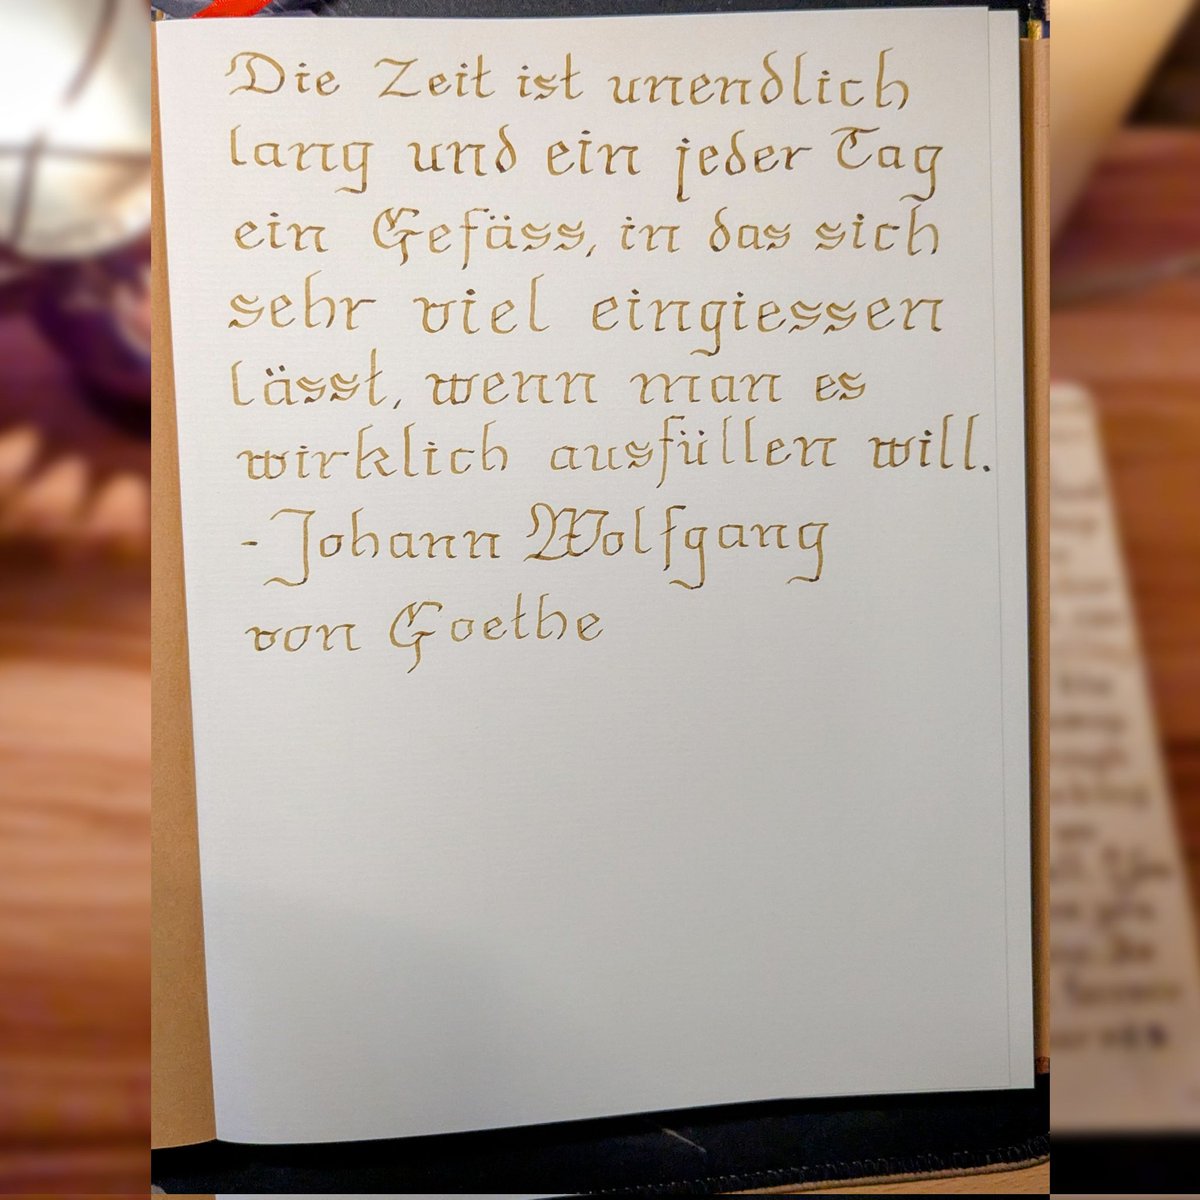 Die Zeit ist unendlich
lang und ein jeder Tag
ein Gefäss, in das sich
sehr viel eingiessen
lässt, wenn man es
wirklich ausfüllen will.
- Johann Wolfgang
von Goethe